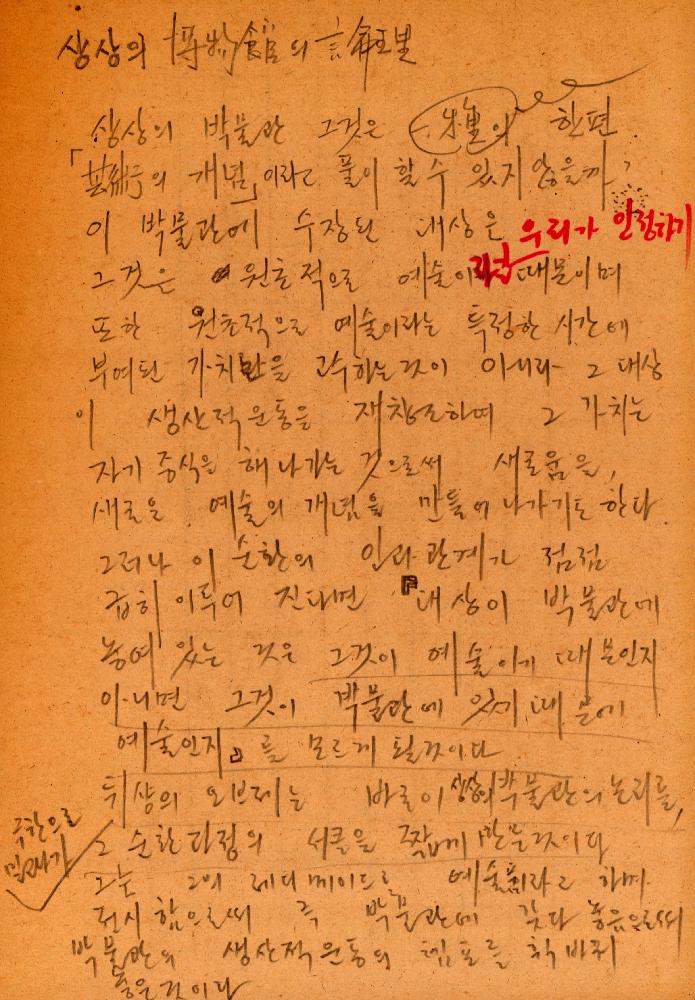 상상의 博物館의 論理
상상의 박물관 그것은 一種의 한편
「芸術의 개념」이라고 풀이 할 수 있지 않을까?
이 박물관에 수장된 대상은 우리가 인정하기
그것은 원초적으로 예술이 때문이며
또한 원초적으로 예술이라는 특정한 시간에
부여된 가치만을 고수하는것이 아니라 그 대상
이 생산적운동을 재창조하며 그 가치는
자기 증식을 해 나가는 것으로써 새로움을,
새로운 예술의 개념을 만들어 나가기도 한다
그러나 이 순환의 인과관계가 점점
급히 이루어 진다면 『대상이 박물관에
놓여 있는 것은 그것이 예술이기 때문인지
아니면 그것이 박물관에 있기 때문에
예술인지』를 모르게 될것이다
뒤샹의 오브제는 바로 이 상상의 박물관의 논리를,
극한으로
밀고나기
그 순환과정의 서클을 짧게 만든것이다
그는 그의 레디메이드를 예술품이라고 하며
전시 함으로써 즉 박물관에 갖다 놓음으로써
박물관의 생산적운동의 템포를 확 바꿔
놓은것이다